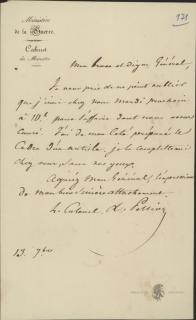 Ministère
de la Guerre.
Cabinet
du Ministre
131
Mon brave et digne Général,
Je vous prie de ne point oublier
que j'irai chez vous mardi prochain
à 10h pour l'affaire dont nous avons
causé. J'ai de mon côté préparé le
cadre d'un article. je le complétterai
chez vous, sous vos yeux.
Agréez Mon Général, l'expression
de mon bien sincère attachement.
Le Colonel
13. 7bre